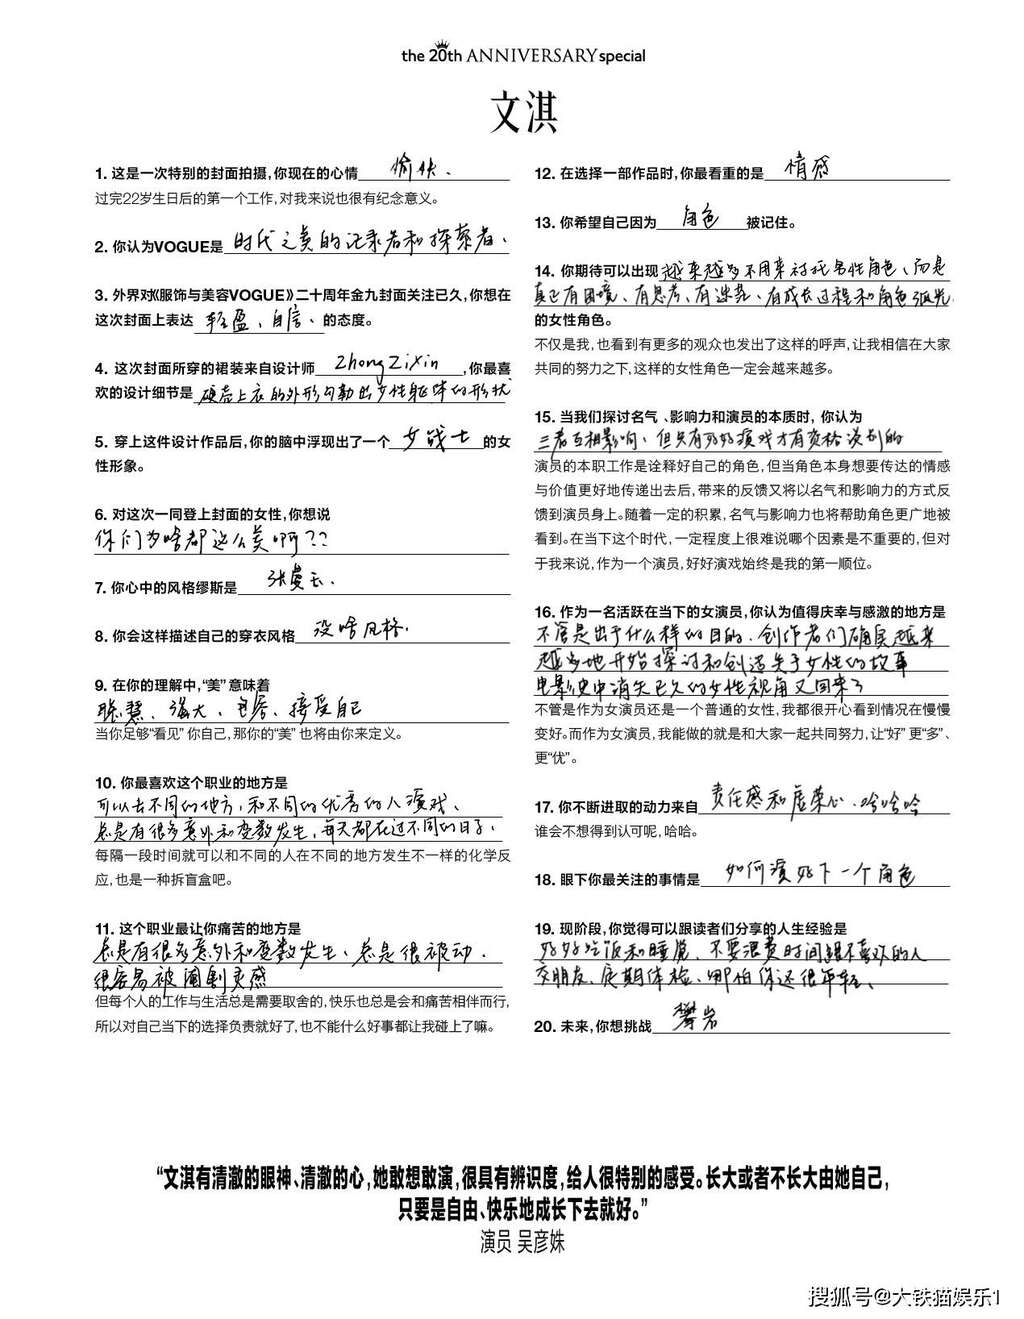 the 20th ANNIVERSARY special
文淇
1. 这是一次特别的封面拍摄,你现在的心情 愉快、
过完22岁生日后的第一个工作,对我来说也很有纪念意义。
2. 你认为VOGUE是 时代之美的记录者和探索者、
3. 外界对《服饰与美容VOGUE》二十周年金九封面关注已久,你想在
这次封面上表达 轻盈、自信、的态度。
4. 这次封面所穿的裙装来自设计师 Zhong Zixin ,你最喜
欢的设计细节是 硬壳上衣的外形勾勒出女性躯体的形状
5. 穿上这件设计作品后,你的脑中浮现出了一个 女战士 的女
性形象。
6. 对这次一同登上封面的女性,你想说
你们为啥都这么美啊??
7. 你心中的风格缪斯是 张曼玉、
8. 你会这样描述自己的穿衣风格 没啥风格、
9. 在你的理解中,“美”意味着
聪慧、强大、包容、接受自己
当你足够“看见”你自己,那你的“美”也将由你来定义。
10. 你最喜欢这个职业的地方是
可以去不同的地方,和不同的优秀的人演戏、
总是有很多意外和变数发生,每天都在过不同的日子、
每隔一段时间就可以和不同的人在不同的地方发生不一样的化学反
应,也是一种拆盲盒吧。
11. 这个职业最让你痛苦的地方是
总是有很多意外和变数发生、总是很被动、
很容易被阉割灵感
但每个人的工作与生活总是需要取舍的,快乐也总是会和痛苦相伴而行,
所以对自己当下的选择负责就好了,也不能什么好事都让我碰上了嘛。
12. 在选择一部作品时,你最看重的是 情感
13. 你希望自己因为 角色 被记住。
14. 你期待可以出现 越来越多不用来讨好男性角色、而是
真正有困境、有思考、有迷茫、有成长过程和角色弧光
的女性角色。
不仅是我,也看到有更多的观众也发出了这样的呼声,让我相信在大家
共同的努力之下,这样的女性角色一定会越来越多。
15. 当我们探讨名气、影响力和演员的本质时,你认为
三者互相影响、但只有好好演戏才有资格谈别的
演员的本职工作是诠释好自己的角色,但当角色本身想要传达的情感
与价值更好地传递出去后,带来的反馈又将以名气和影响力的方式反
馈到演员身上。随着一定的积累,名气与影响力也将帮助角色更广地被
看到。在当下这个时代,一定程度上很难说哪个因素是不重要的,但对
于我来说,作为一个演员,好好演戏始终是我的第一顺位。
16. 作为一名活跃在当下的女演员,你认为值得庆幸与感激的地方是
不管是出于什么样的目的、创作者们确实越来
越多地开始探讨和创造关于女性的故事
电影史中消失已久的女性视角又回来了
不管是作为女演员还是一个普通的女性,我都很开心看到情况在慢慢
变好。而作为女演员,我能做的就是和大家一起共同努力,让“好”更“多”、
更“优”。
17. 你不断进取的动力来自 责任感和虚荣心、哈哈哈
谁会不想得到认可呢,哈哈。
18. 眼下你最关注的事情是 如何演好下一个角色
19. 现阶段,你觉得可以跟读者们分享的人生经验是
好好吃饭和睡觉、不要浪费时间跟不喜欢的人
交朋友、定期体检、哪怕你还很年轻、
20. 未来,你想挑战 攀岩
“文淇有清澈的眼神、清澈的心,她敢想敢演,很具有辨识度,给人很特别的感受。长大或者不长大由她自己,
只要是自由、快乐地成长下去就好。”
演员 吴彦姝
搜狐号@大铁猫娱乐1